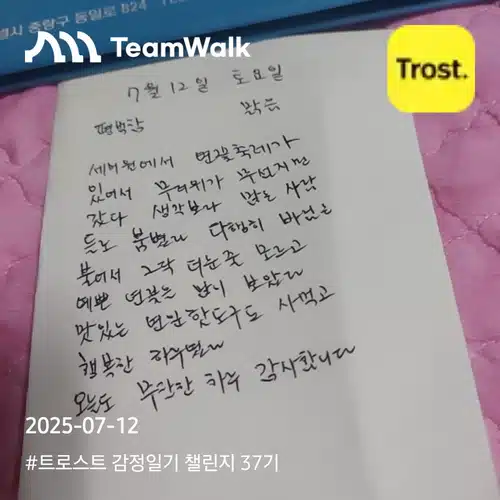 별시 중랑구 동일로 824
TeamWalk
Trost.
7월 12일 토요일
맑음
평범함
세미원에서 연꽃축제가
있어서 무더위가 무섭지만
갔다 생각보다 많은 사람
들로 붐볐다 다행히 바람은
불어서 그닥 더운줄 모르고
예쁜 연꽃은 많이 보았다
맛있는 연잎핫도구도 사먹고
행복한 하루였다
오늘도 무탈한 하루 감사합니다
2025-07-12
#트로스트 감정일기 챌린지 37기